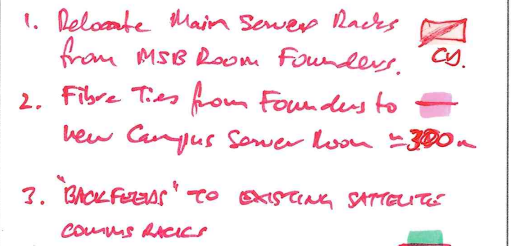 1. Relocate Main Server Racks
from MSB Room Founders.
2. Fibre Ties from Founders to
new Campus Server Room ≈300m
3. "BACKFEEDS" TO EXISTING SATTELITE
COMMS RACKS